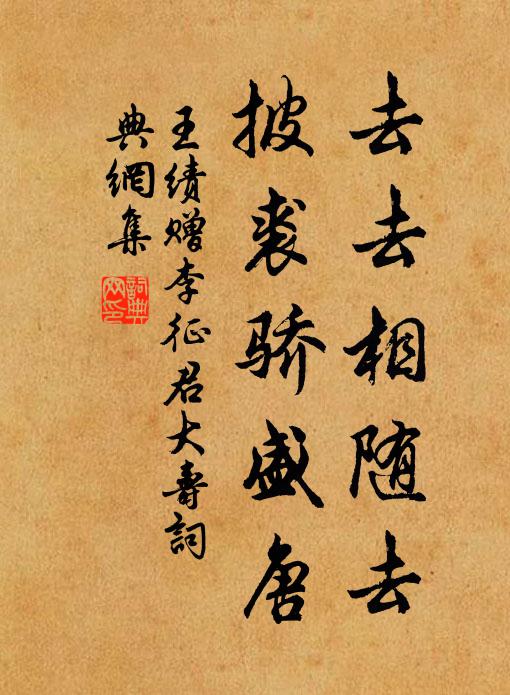 去去相随去
披裘骄盛唐
王绩赠李征君大寿词
典網集
詞典
网印